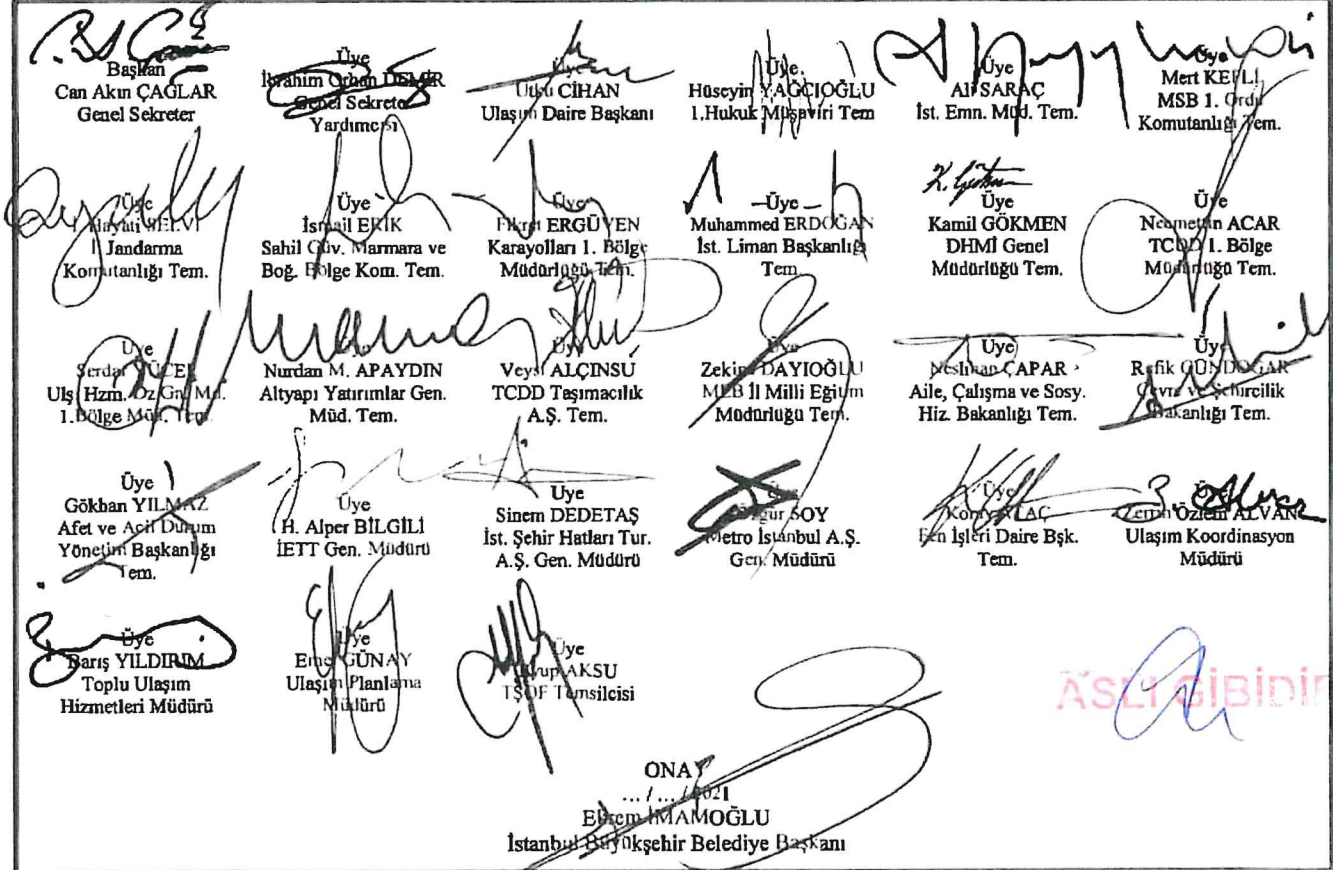 Başkan
Can Akın ÇAĞLAR
Genel Sekreter
Üye
İbrahim Orhan DEMİR
Genel Sekreter
Yardımcısı
Üye
Utku CİHAN
Ulaşım Daire Başkanı
Üye
Hüseyin YAĞCIOĞLU
1.Hukuk Müşaviri Tem
Üye
Ali SARAÇ
İst. Emn. Müd. Tem.
Üye
Mert
MSB 1. Ordu
Komutanlığı Tem.
Üye
Hayati
Jandarma
Komutanlığı Tem.
Üye
İsmail ERİK
Sahil Güv. Marmara ve
Boğ. Bölge Kom. Tem.
Üye
Fikret ERGÜVEN
Karayolları 1. Bölge
Müdürlüğü Tem.
Üye
Muhammed ERDOĞAN
İst. Liman Başkanlığı
Tem.
Üye
Kamil GÖKMEN
DHMİ Genel
Müdürlüğü Tem.
Üye
Necmettin ACAR
TCDD 1. Bölge
Müdürlüğü Tem.
Üye
Serdar YÜCEL
Ulş. Hzm. Dz Gn. Md.
1. Bölge Müd. Tem.
Nurdan M. APAYDIN
Altyapı Yatırımlar Gen.
Müd. Tem.
Üye
Veysi ALÇINSU
TCDD Taşımacılık
A.Ş. Tem.
Üye
DAYIOĞLU
MEB İl Milli Eğitim
Müdürlüğü Tem.
Üye
Neslihan ÇAPAR
Aile, Çalışma ve Sosy.
Hiz. Bakanlığı Tem.
Üye
Refik GÜNDOĞAR
Çevre ve Şehircilik
Bakanlığı Tem.
Üye
Gökhan YILMAZ
Afet ve Acil Durum
Yönetim Başkanlığı
Tem.
Üye
H. Alper BİLGİLİ
İETT Gen. Müdürü
Üye
Sinem DEDETAŞ
İst. Şehir Hatları Tur.
A.Ş. Gen. Müdürü
Üye
Özgür SOY
Metro İstanbul A.Ş.
Gen. Müdürü
Üye
Fen İşleri Daire Bşk.
Tem.
Üye
Özlem ALVAN
Ulaşım Koordinasyon
Müdürü
Üye
Barış YILDIRIM
Toplu Ulaşım
Hizmetleri Müdürü
Üye
GÜNAY
Ulaşım Planlama
Müdürü
Üye
Eyup AKSU
TŞOF Temsilcisi
ASLI GİBİDİR
ONAY
... / ... / 2021
Ekrem İMAMOĞLU
İstanbul Büyükşehir Belediye Başkanı